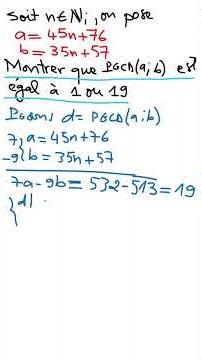 soit n∈ℕ, on pose
a = 45n+76
b = 35n+57
Montrer que PGCD(a;b) est
égal à 1 ou 19
Posons d= PGCD(a;b)
7 { a = 45n+76
-9 { b = 35n+57
7a-9b = 532-513 = 19
{ d|